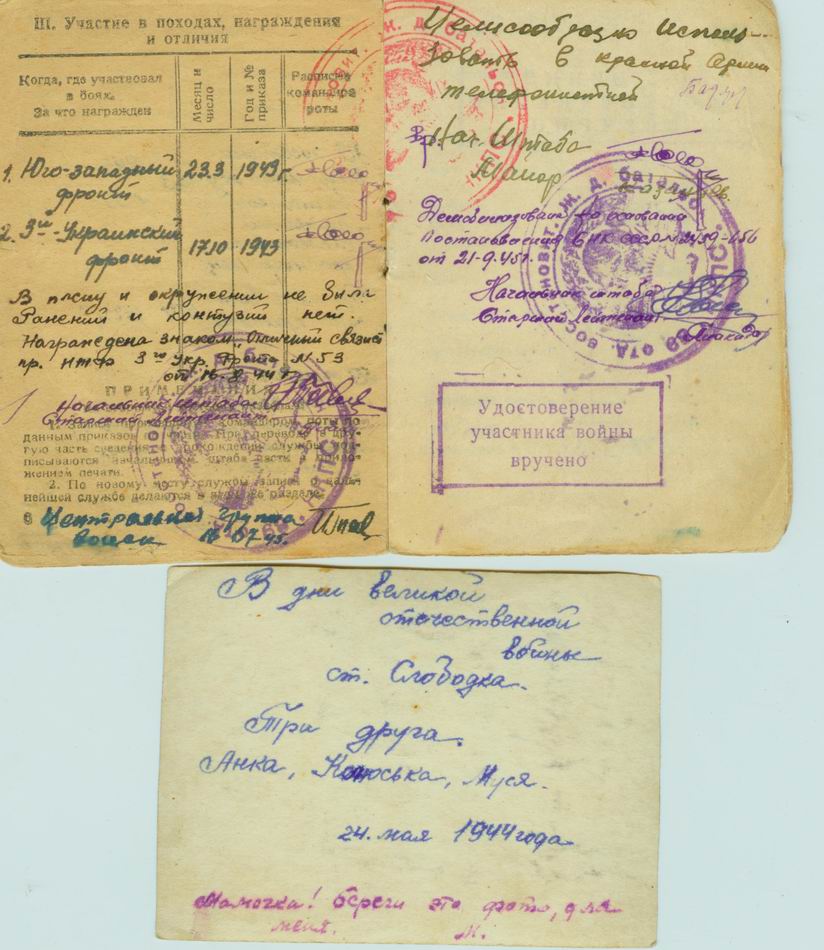 III. Участие в походах, награждения
и отличия
Когда, где участвовал
в боях.
За что награжден
Месяц и
число
Год и №
приказа
Расписка
командира
роты
1. Юго-западный 23.3 1943 г.
фронт
2. 3й-Украинский
фронт 17.10 1943
В плену и окружении не была
Ранений и контузий нет.
Награждена знаком "Отличный связист"
пр. 3й Укр. Фронта № 53
от 16-8-44 г.
ПРИМЕЧАНИЯ
Начальник штаба
Старший лейтенант
командиром роты по
данным приказов При переводе в дру-
гую часть сведения о прохождении службы под-
писываются начальником штаба части с прило-
жением печати.
2. По новому месту службы записи о даль-
нейшей службе делаются в этом же разделе.
Центральная группа
войск 16.07.45.
Целесообразно исполь-
зовать в красной Армии
телефонисткой
Нач. Штаба
Майор
Демобилизована на основании
Постановления СНК СССР
от 21-9.45 г.
Начальник штаба
Старший лейтенант
Удостоверение
участника войны
вручено
В дни великой
отечественной
войны
ст. Слободка.
Три друга.
Анка, Кoтюська, Муся.
24. мая 1944 года
Мамочка! береги это фото, для
меня. М.